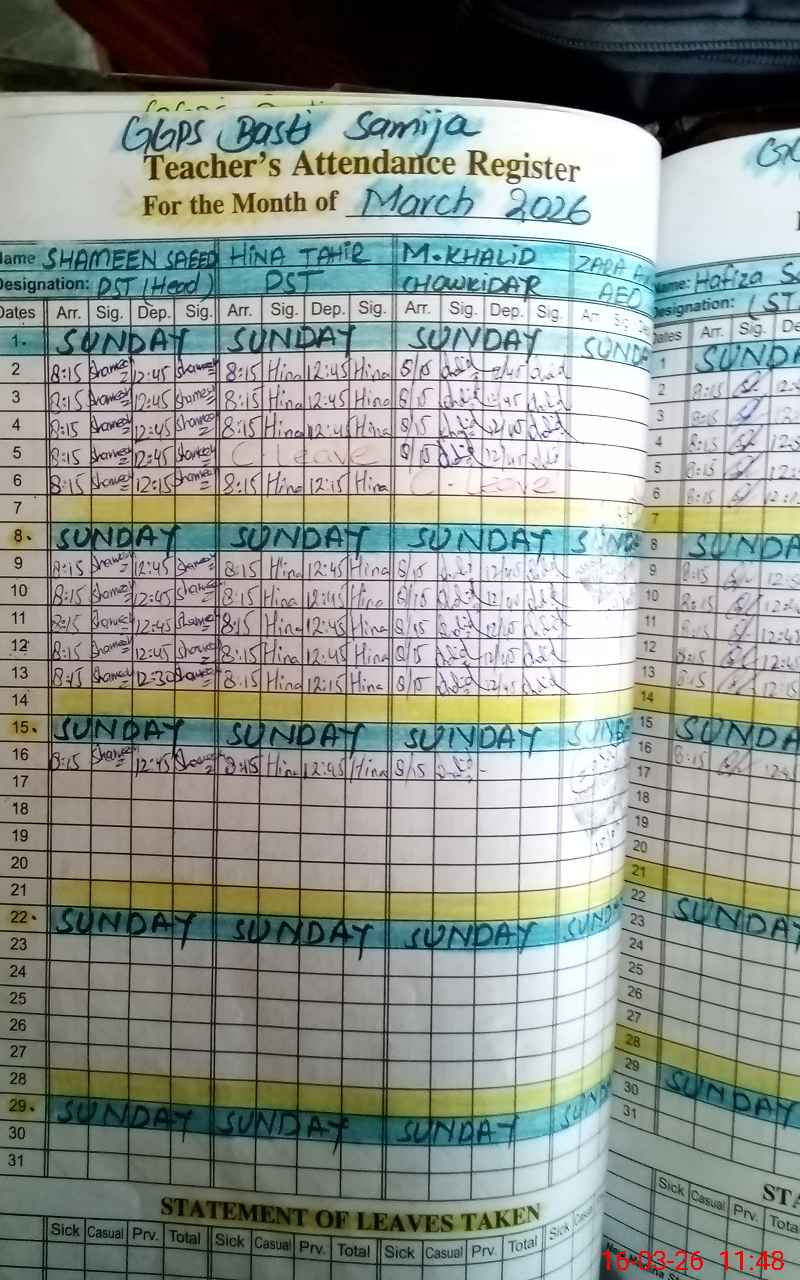 GGPS Basti Samija
Teacher's Attendance Register
For the Month of March 2026
Name SHAMEEN SAEED HINA TAHIR M.KHALID ZARA
Designation: PST (Head) PST CHOWKIDAR AEO
Dates Arr. Sig. Dep. Sig. Arr. Sig. Dep. Sig. Arr. Sig. Dep. Sig. Arr Sig
1. SUNDAY SUNDAY SUNDAY SUNDA
2 8:15 Shameen 12:45 Shameen 8:15 Hina 12:45 Hina 8/15 12/45
3 8:15 Shameen 12:45 Shameen 8:15 Hina 12:45 Hina 8/15 12/45
4 8:15 Shameen 12:45 Shameen 8:15 Hina 12:45 Hina 8/15 12/45
5 8:15 Shameen 12:45 Shameen C. Leave 8/15 12/45
6 8:15 Shameen 12:15 Shameen 8:15 Hina 12:15 Hina C. Leave
7
8. SUNDAY SUNDAY SUNDAY SUNDA
9 8:15 Shameen 12:45 Shameen 8:15 Hina 12:45 Hina 8/15 12/45
10 8:15 Shameen 12:45 Shameen 8:15 Hina 12:45 Hina 8/15 12/45
11 8:15 Shameen 12:45 Shameen 8:15 Hina 12:45 Hina 8/15 12/45
12 8:15 Shameen 12:45 Shameen 8:15 Hina 12:45 Hina 8/15 12/45
13 Shameen 12:30 Shameen 8:15 Hina 12:15 Hina 8/15 12/45
14
15. SUNDAY SUNDAY SUNDAY SUNDA
16 8:15 Shameen 12:45 Shameen 8:15 Hina 12:45 Hina 8/15
17
18
19
20
21
22. SUNDAY SUNDAY SUNDAY SUND
23
24
25
26
27
28
29. SUNDAY SUNDAY SUNDAY SUN
30
31
STATEMENT OF LEAVES TAKEN
Sick Casual Prv. Total Sick Casual Prv. Total Sick Casual Prv. Total Sick Casual
Name: Hafiza
Designation: (ST
Dates Arr. Sig. De
1 SUNDA
2 8:15
3 8:15
4 8:15
5 8:15
6 8:15
7
8 SUNDA
9 8:15
10 8:15
11 8:15
12 8:15
13 8:15
14
15 SUNDA
16 8:15
17
18
19
20
21
22 SUNDAY
23
24
25
26
27
28
29 SUNDAY
30
31
STA
Sick Casual Prv. Tota
16-03-26 11:48